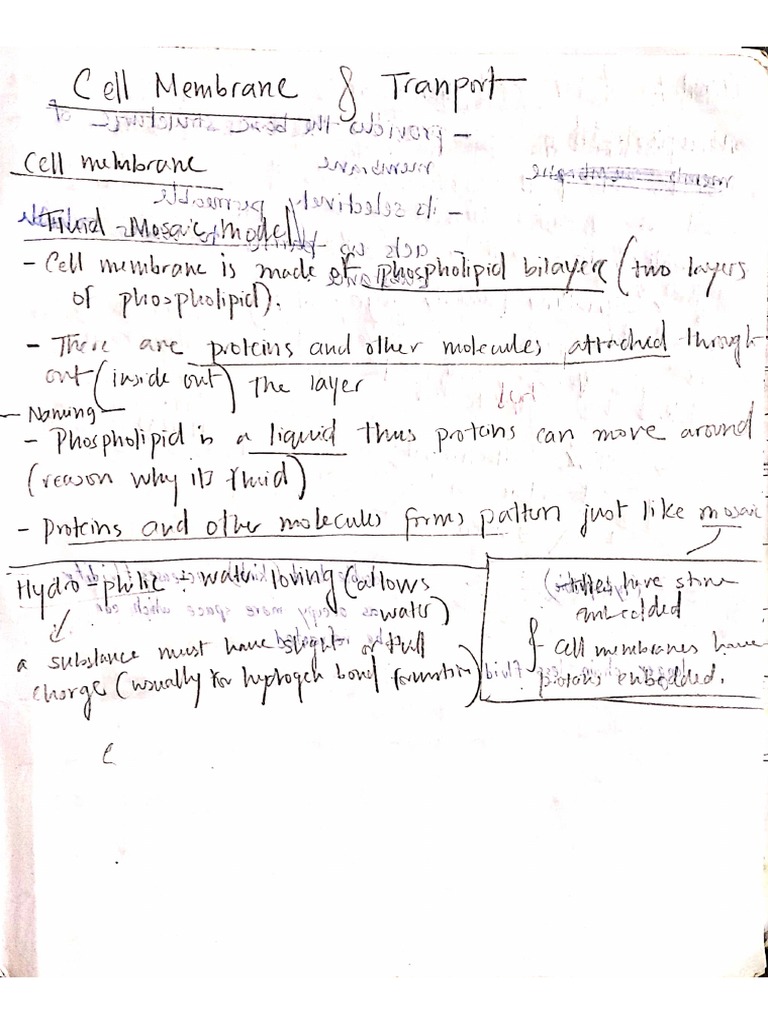 Cell Membrane & Tranport
Cell membrane
Fluid-Mosaic model
- Cell membrane is made of phospholipid bilayer (two layers
of phospholipid).
- There are proteins and other molecules attached through
out (inside out) the layer
- Naming -
- Phospholipid is a liquid thus protens can move around
(reason why it's fluid)
- Proteins and other molecules forms pattern just like mosaic
Hydro-philic : water loving (allows
water)
a substance must have slight or full
charge (usually for hydrogen bond formation)
tiles have stone
embedded
& cell membranes have
protons embedded.